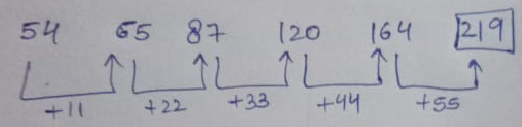 54 65 87 120 164 219
+11 +22 +33 +44 +55